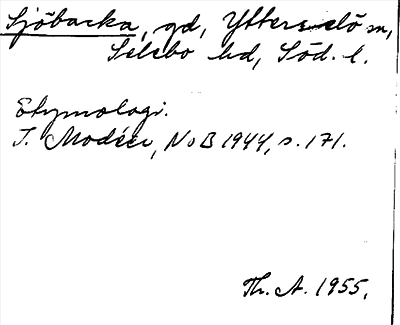 Sjöbacka, gd, Ytterselö sn,
Selebo hd, Söd. l.
Etymologi.
I. Modéer, NoB 1944, s. 171.
Th. A. 1955.